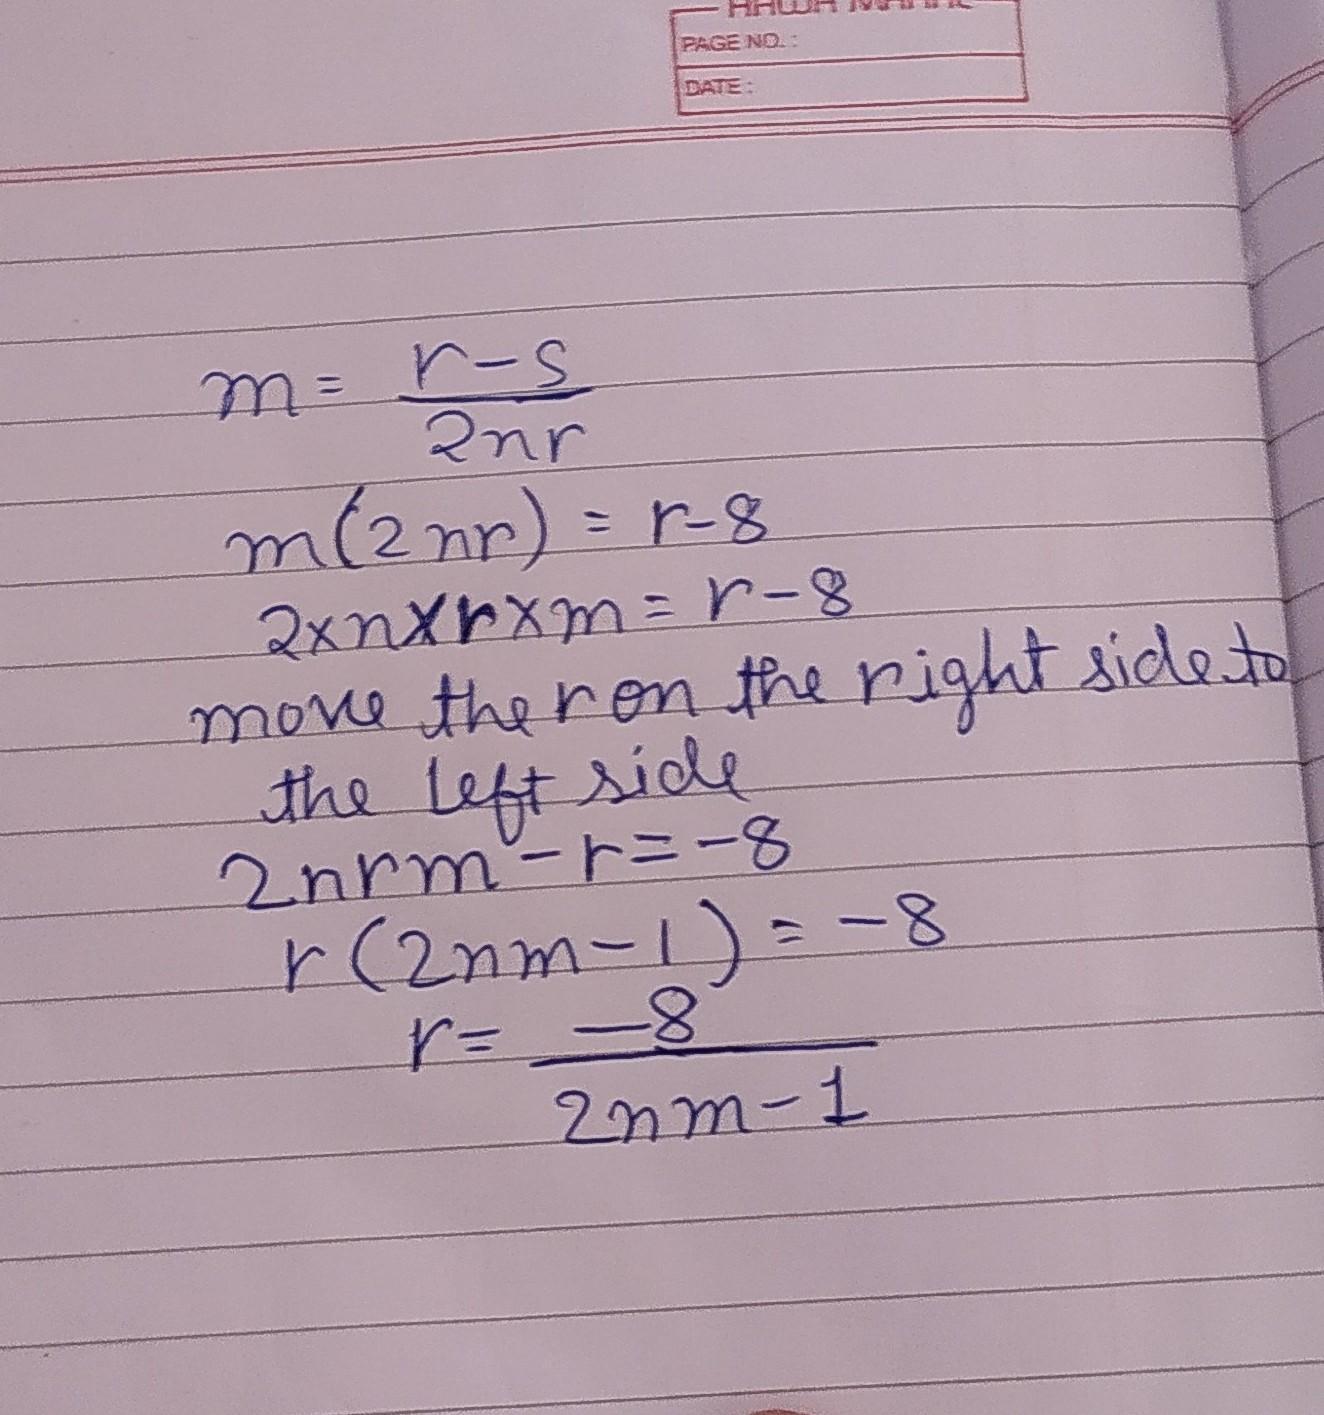 PAGE NO. :
DATE :
m = r-s
2nr
m(2nr) = r-8
2xnxrxm = r-8
move the r on the right side to
the left side
2nrm - r = -8
r(2nm-1) = -8
r = -8
2nm-1